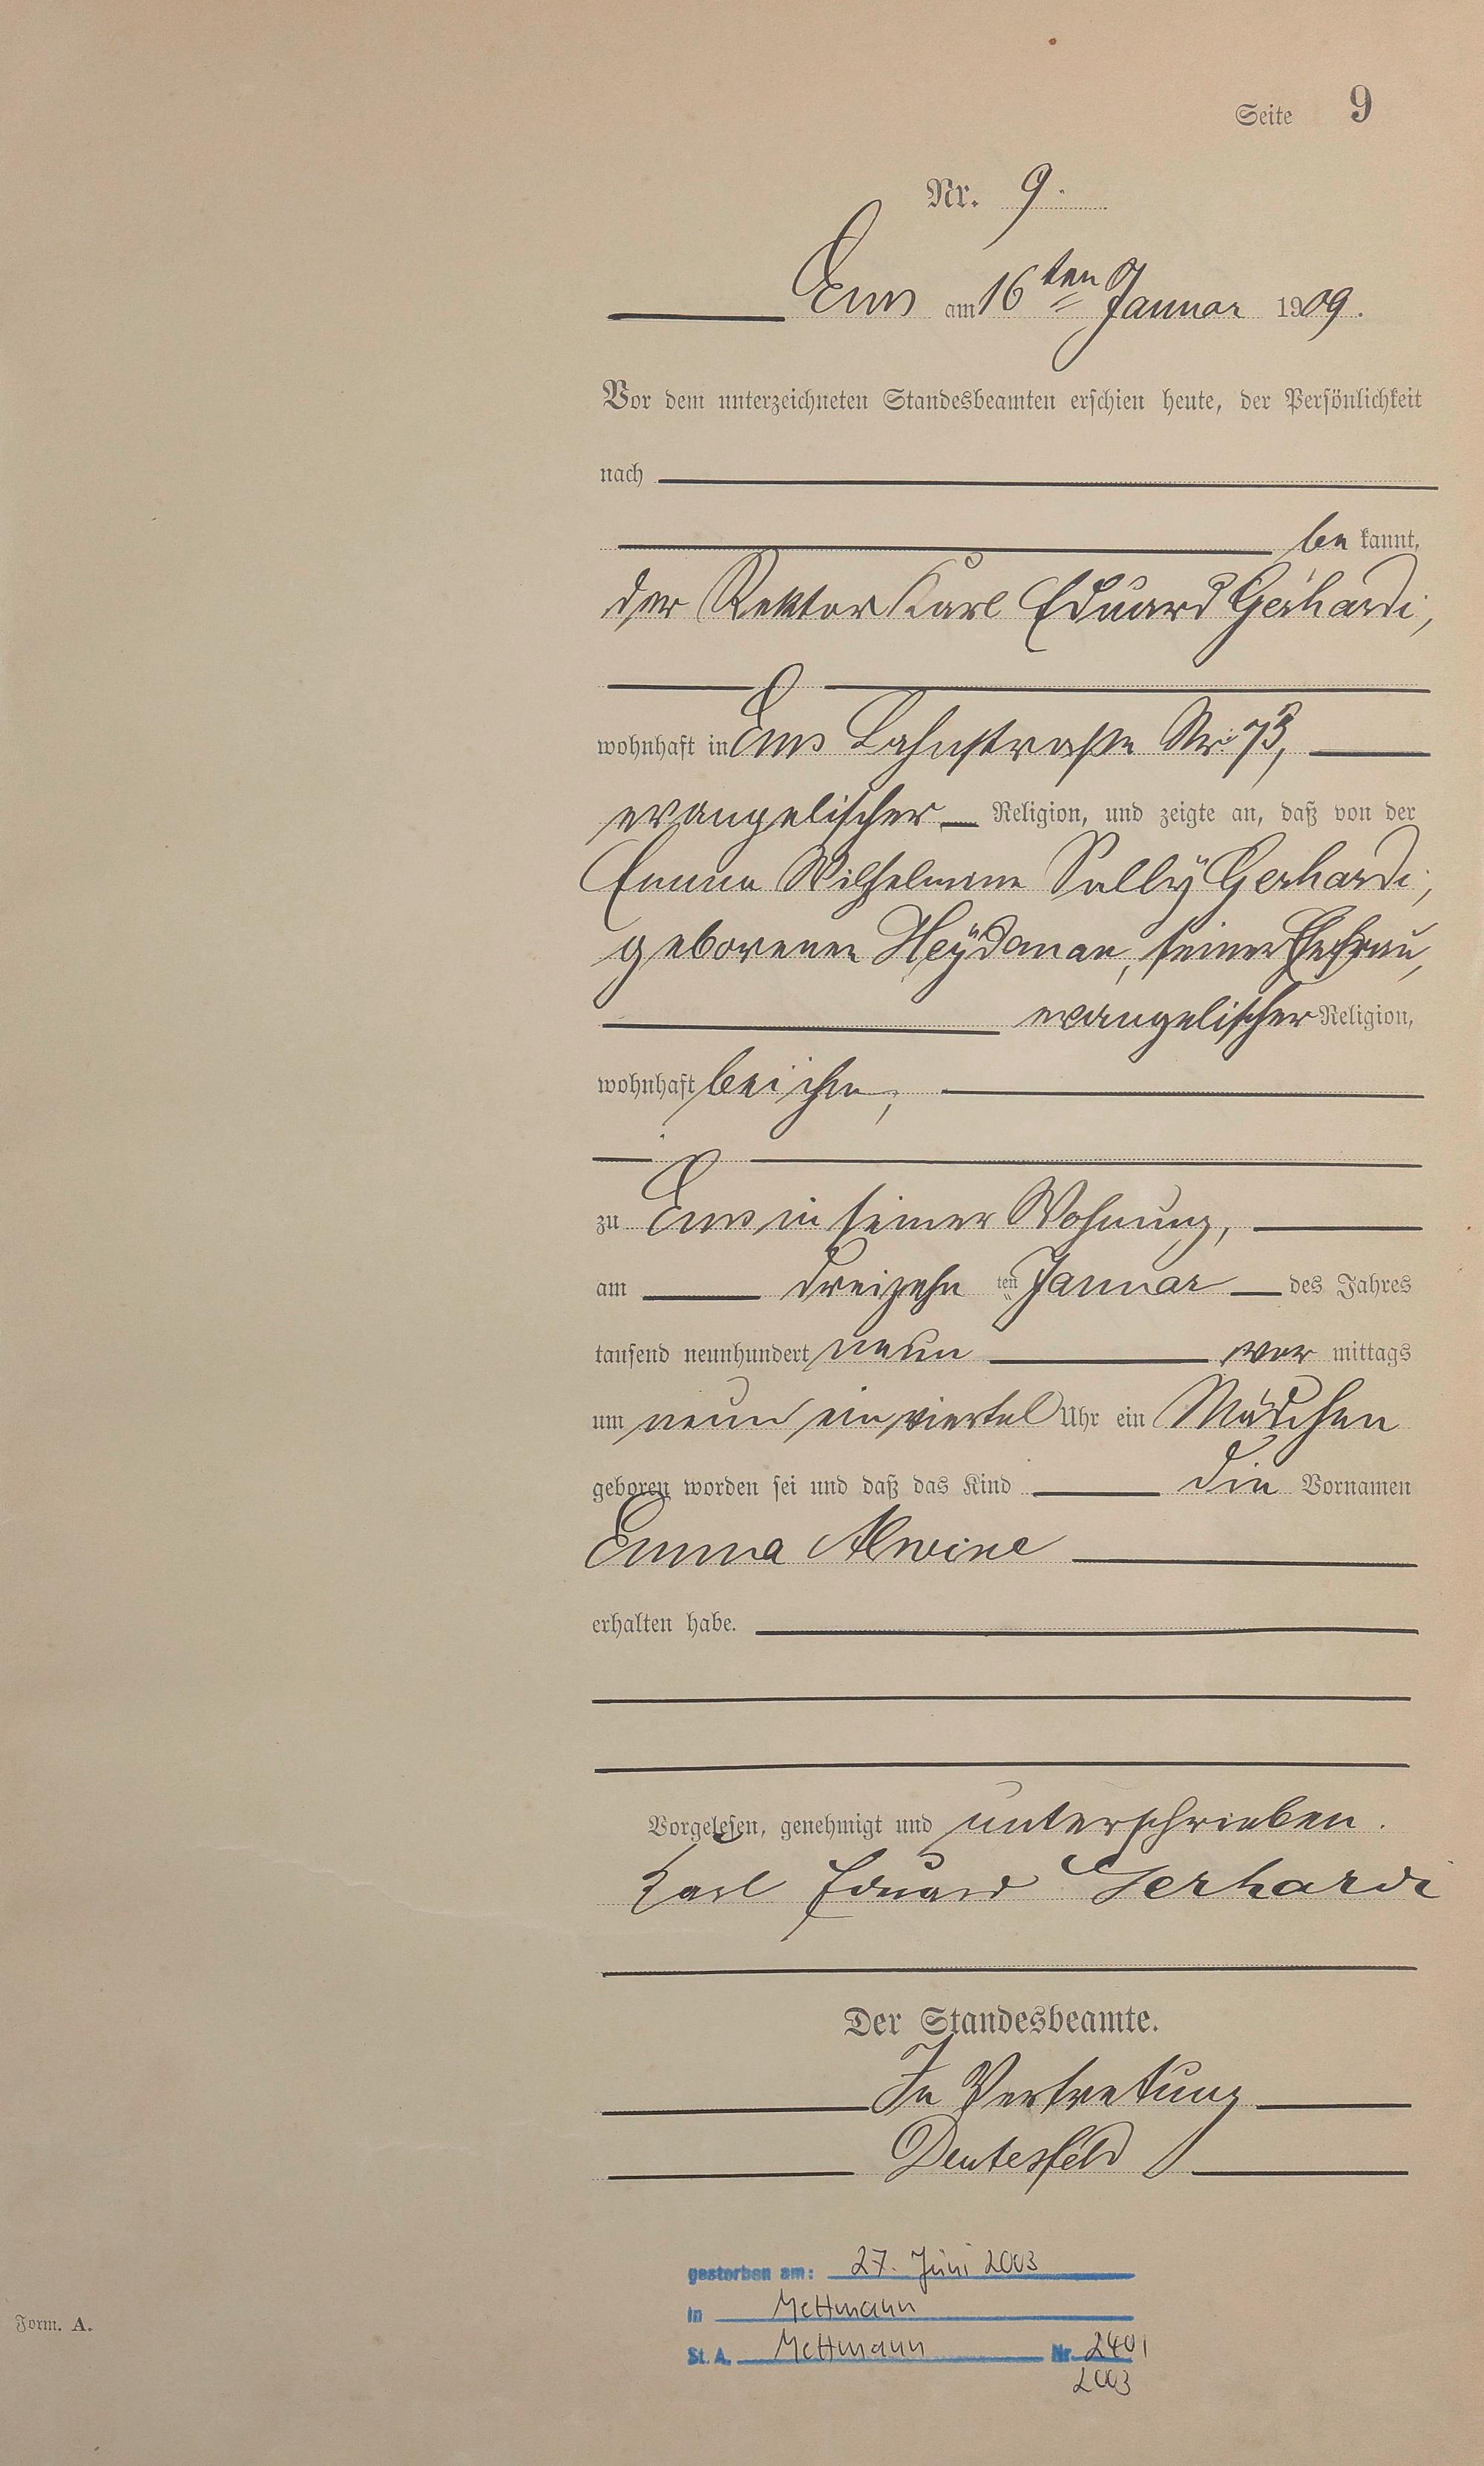 Seite 9
Nr. 9.
Ems am 16ten Januar 1909.
Vor dem unterzeichneten Standesbeamten erschien heute, der Persönlichkeit
nach
be kannt,
der Rektor Karl Eduard Gerhardi,
wohnhaft in Ems Lahnstraße Nr. 73,
evangelischer Religion, und zeigte an, daß von der
Emma Wilhelmine Sally Gerhardi,
geborenen Heÿdaman, seiner Ehefrau,
evangelischer Religion,
wohnhaft bei ihm,
zu Ems in seiner Wohnung,
am dreizehn ten Januar des Jahres
tausend neunhundert neun vor mittags
um neun ein viertel Uhr ein Mädchen
geboren worden sei und daß das Kind die Vornamen
Emma Alwine
erhalten habe.
Vorgelesen, genehmigt und unterschrieben.
Karl Eduard Gerhardi
Der Standesbeamte.
In Vertretung
Deutesfeld
gestorben am: 27. Juni 2003
in Mettmann
St. A. Mettmann Nr. 240/
2003
Form. A.